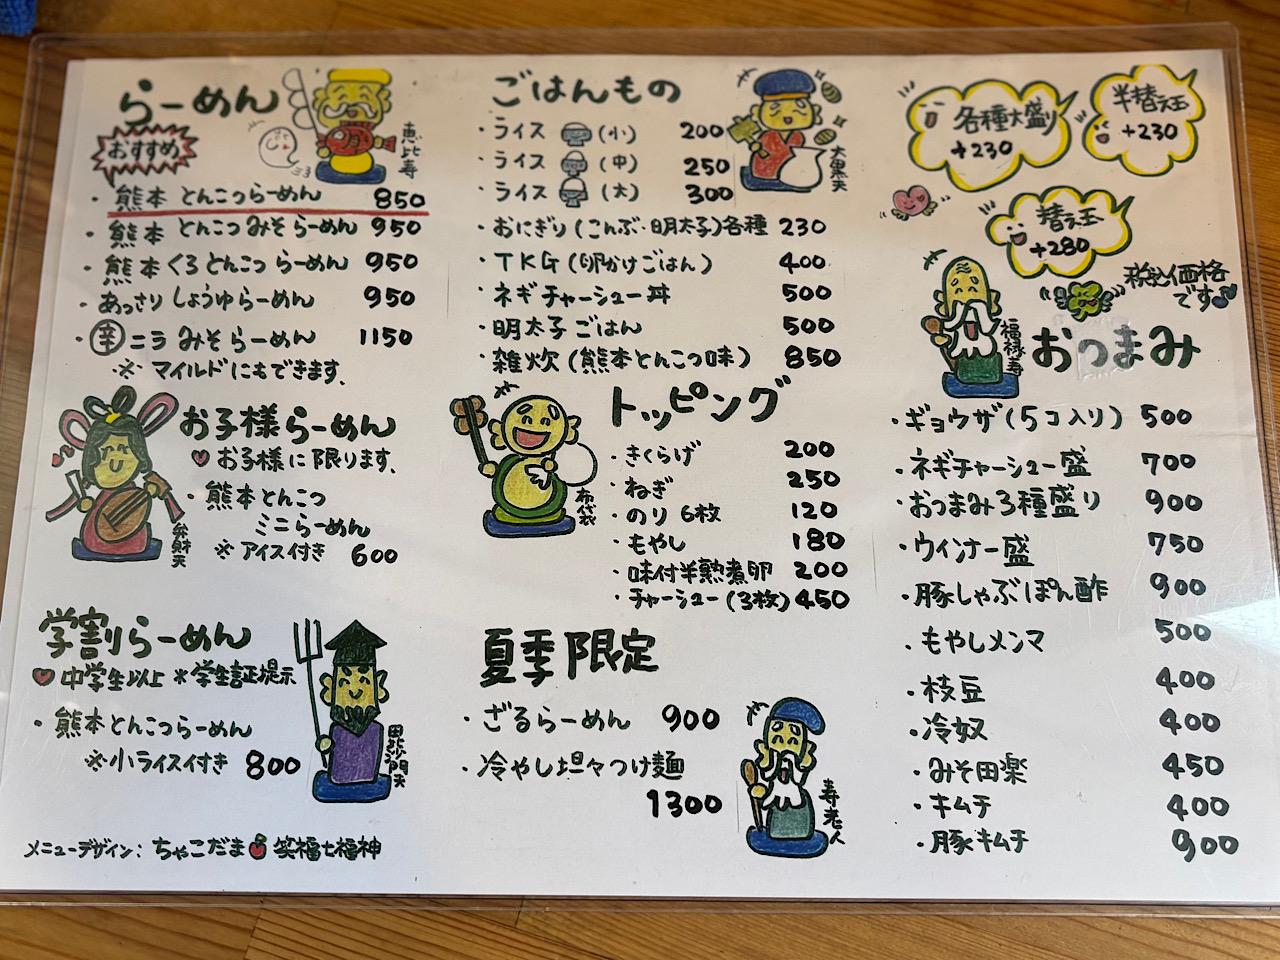 らーめん
おすすめ
恵比寿
・熊本 とんこつらーめん 850
・熊本 とんこつ みそ らーめん 950
・熊本 くろ とんこつ らーめん 950
・あっさり しょうゆ らーめん 950
・辛 ニラ みそ らーめん 1150
※ マイルドにもできます、
お子様らーめん
♥ お子様に限ります、
・熊本 とんこつ
ミニらーめん
※ アイス付き 600
弁財天
学割らーめん
♥ 中学生以上 *学生証提示
・熊本とんこつらーめん
※小ライス付き 800
毘沙門天
メニューデザイン: ちゃこだま 笑福七福神
ごはんもの
大黒天
・ライス (小) 200
・ライス (中) 250
・ライス (大) 300
・おにぎり(こんぶ・明太子)各種 230
・TKG(卵かけごはん) 400
・ネギチャーシュー丼 500
・明太子ごはん 500
・雑炊(熊本とんこつ味) 850
トッピング
布袋
・きくらげ 200
・ねぎ 250
・のり 6枚 120
・もやし 180
・味付半熟煮卵 200
・チャーシュー(3枚) 450
夏季限定
・ざるらーめん 900
・冷やし坦々つけ麺
1300
寿老人
各種大盛り
+230
半替え玉
+230
替え玉
+280
税込価格
です♪
福禄寿
おつまみ
・ギョウザ(5コ入り) 500
・ネギチャーシュー盛 700
・おつまみ3種盛り 900
・ウィンナー盛 750
・豚しゃぶぽん酢 900
・もやしメンマ 500
・枝豆 400
・冷奴 400
・みそ田楽 450
・キムチ 400
・豚キムチ 900